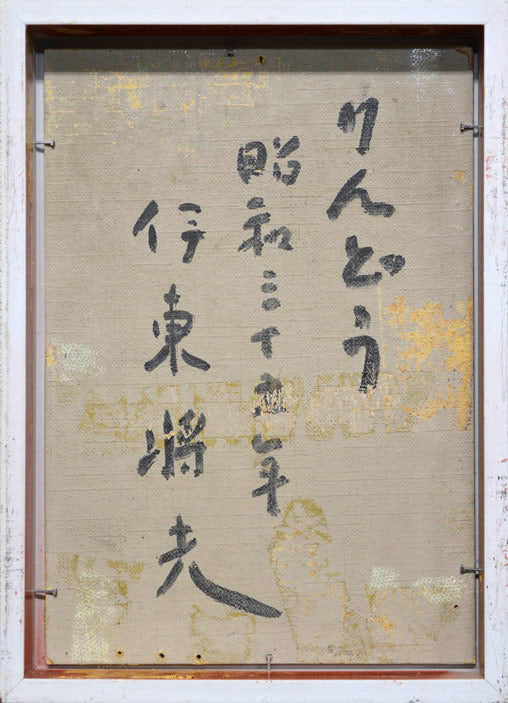 りんどう
昭和三十年
伊東将夫